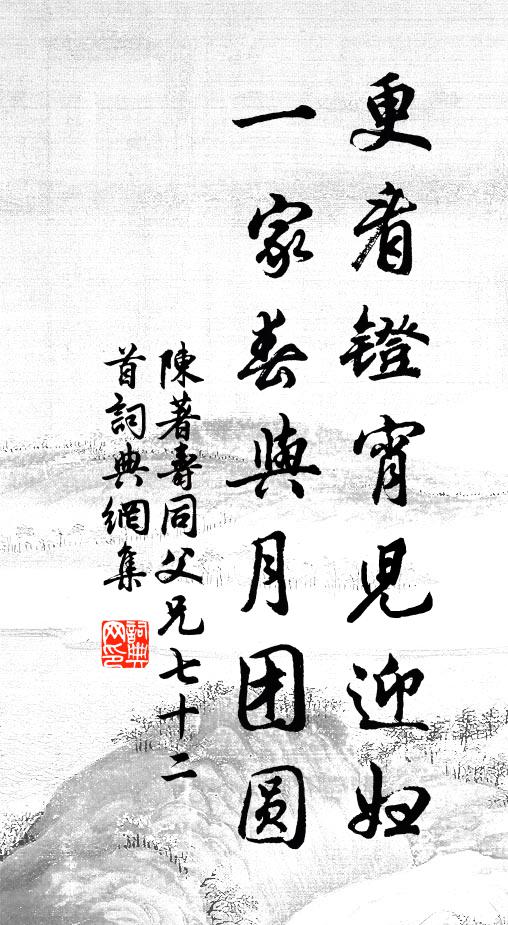 更看鐙宵児迎婦
一家春與月团圆
陳著壽同父兄七十二
首詞典網集
詞典网印